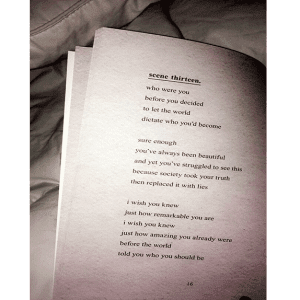 scene thirteen.
who were you
before you decided
to let the world
dictate who you'd become
sure enough
you've always been beautiful
and yet you've struggled to see this
because society took your truth
then replaced it with lies
i wish you knew
just how remarkable you are
i wish you knew
just how amazing you already were
before the world
told you who you should be